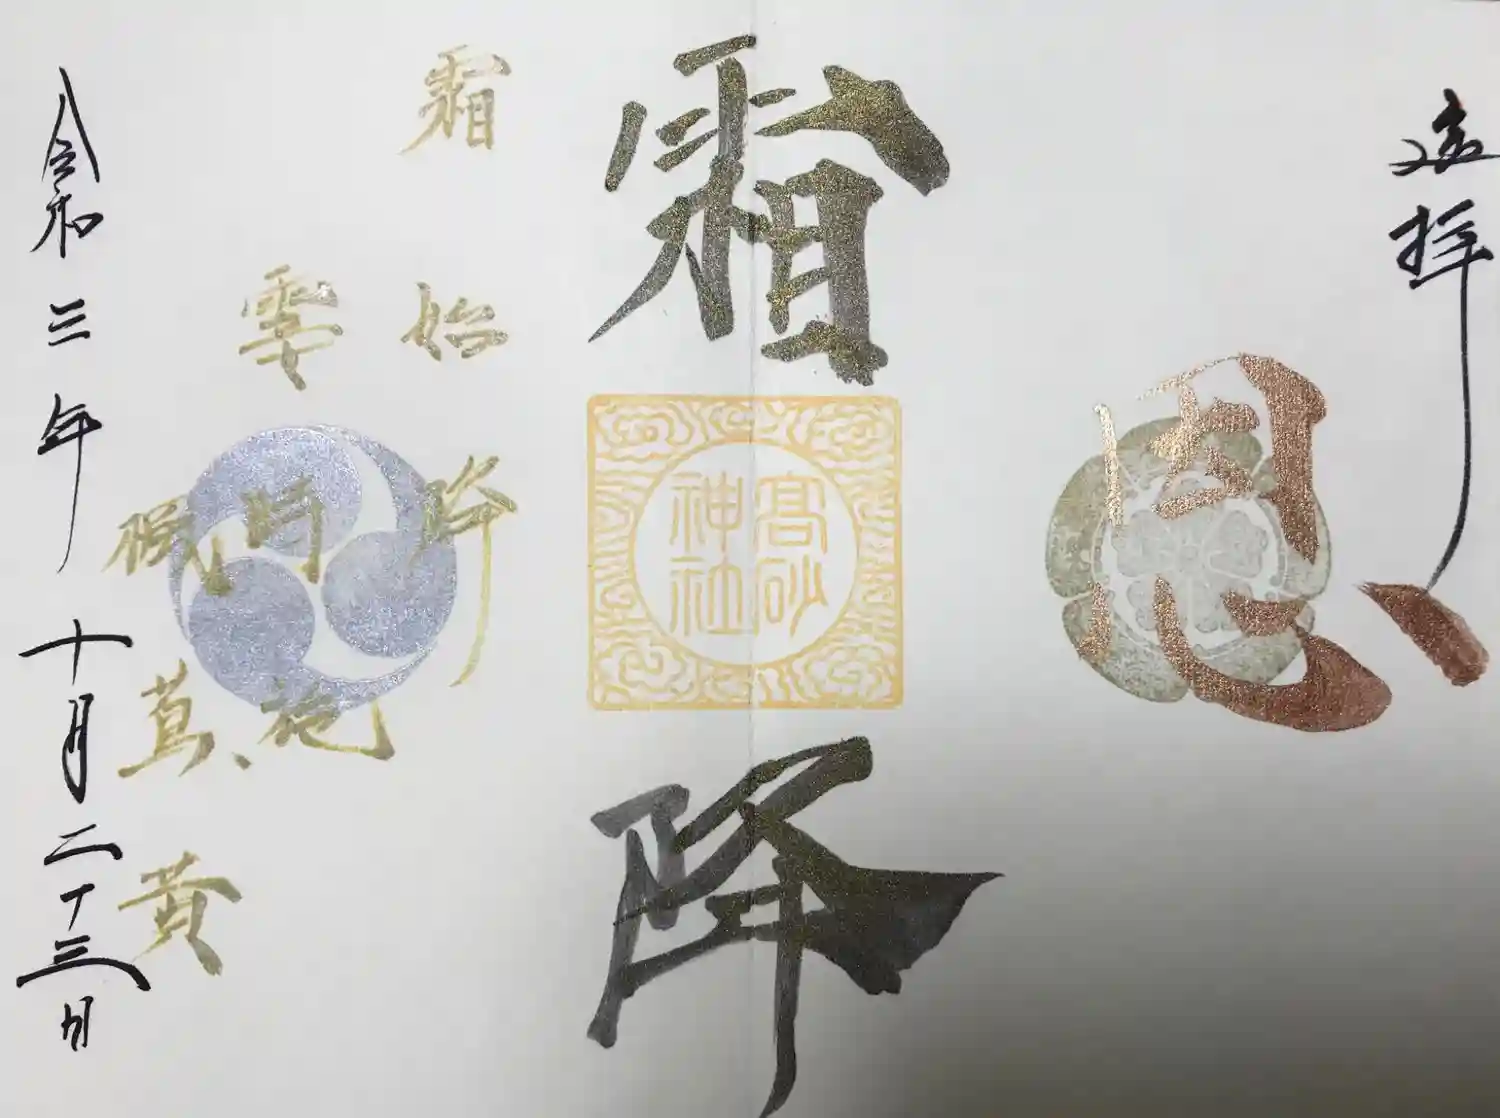 遥拝
恩
霜降
髙砂
神社
霜始降
霎時施
楓蔦黄
令和三年十月二十三日